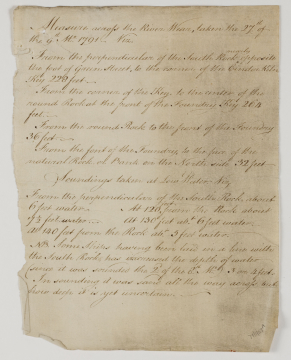 Measure across the River Wear, taken the 27th of
the 9th Mo 1791 — Viz
From the perpendicular of the South Rock opposite
the foot of Street, to the corner of the
Key 228 feet —
From the corner of the Key to the center of the
round Rock at the front of the Foundery Key 264
feet —
From the round Rock to the front of the Foundery
36 feet —
From the front of the Foundery to the face of the
natural Rock on the North side 32 feet —
Soundings taken at Low Water Viz
From the perpendicular of the South Rock, about
6 feet water — At from the Rock about
7½ feet water — at 130 feet abt 6 feet water
at 140 feet from the Rock abt 3 feet water
NB. Some having been laid on a line with
the South Rock, has increased the depth of water
since it was sounded the 2d of the 8th Mo 3 or 4 feet
In sounding it was sand all the way across but
how deep it is yet uncertain —